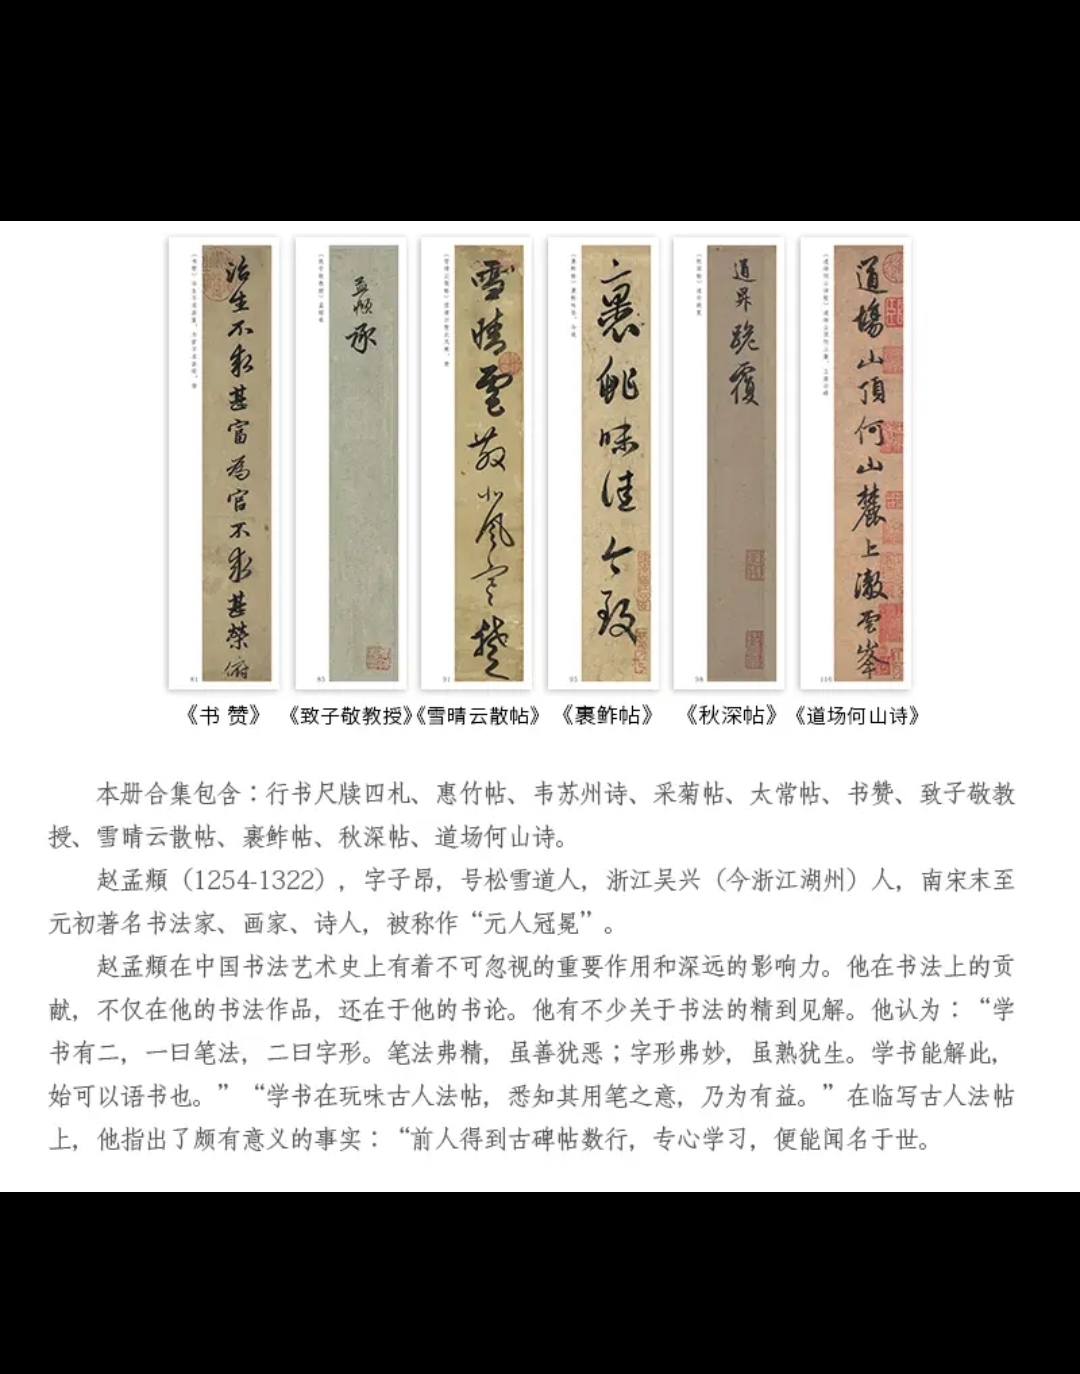 治生不求甚富为官不求甚荣俯
孟頫
承
雪晴云散北风寒楚
裹鲊味佳今致
道昇跪覆
道場山頂何山麓上澈雲峯
81
85
91
95
98
《书 赞》
《致子敬教授》
《雪晴云散帖》
《裹鲊帖》
《秋深帖》
《道场何山诗》
本册合集包含：行书尺牍四札、惠竹帖、韦苏州诗、采菊帖、太常帖、书赞、致子敬教
授、雪晴云散帖、裹鲊帖、秋深帖、道场何山诗。
赵孟頫（1254-1322），字子昂，号松雪道人，浙江吴兴（今浙江湖州）人，南宋末至
元初著名书法家、画家、诗人，被称作“元人冠冕”。
赵孟頫在中国书法艺术史上有着不可忽视的重要作用和深远的影响力。他在书法上的贡
献，不仅在他的书法作品，还在于他的书论。他有不少关于书法的精到见解。他认为：“学
书有二，一曰笔法，二曰字形。笔法弗精，虽善犹恶；字形弗妙，虽熟犹生。学书能解此，
始可以语书也。”“学书在玩味古人法帖，悉知其用笔之意，乃为有益。”在临写古人法帖
上，他指出了颇有意义的事实：“前人得到古碑帖数行，专心学习，便能闻名于世。